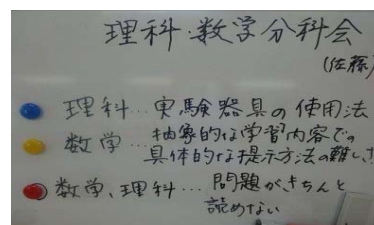 理科・数学分科会
(佐藤)
理科…実験器具の使用法
数学…抽象的な学習内容での
具体的な提示方法の難しさ
数学、理科…問題が、きちんと
読めない